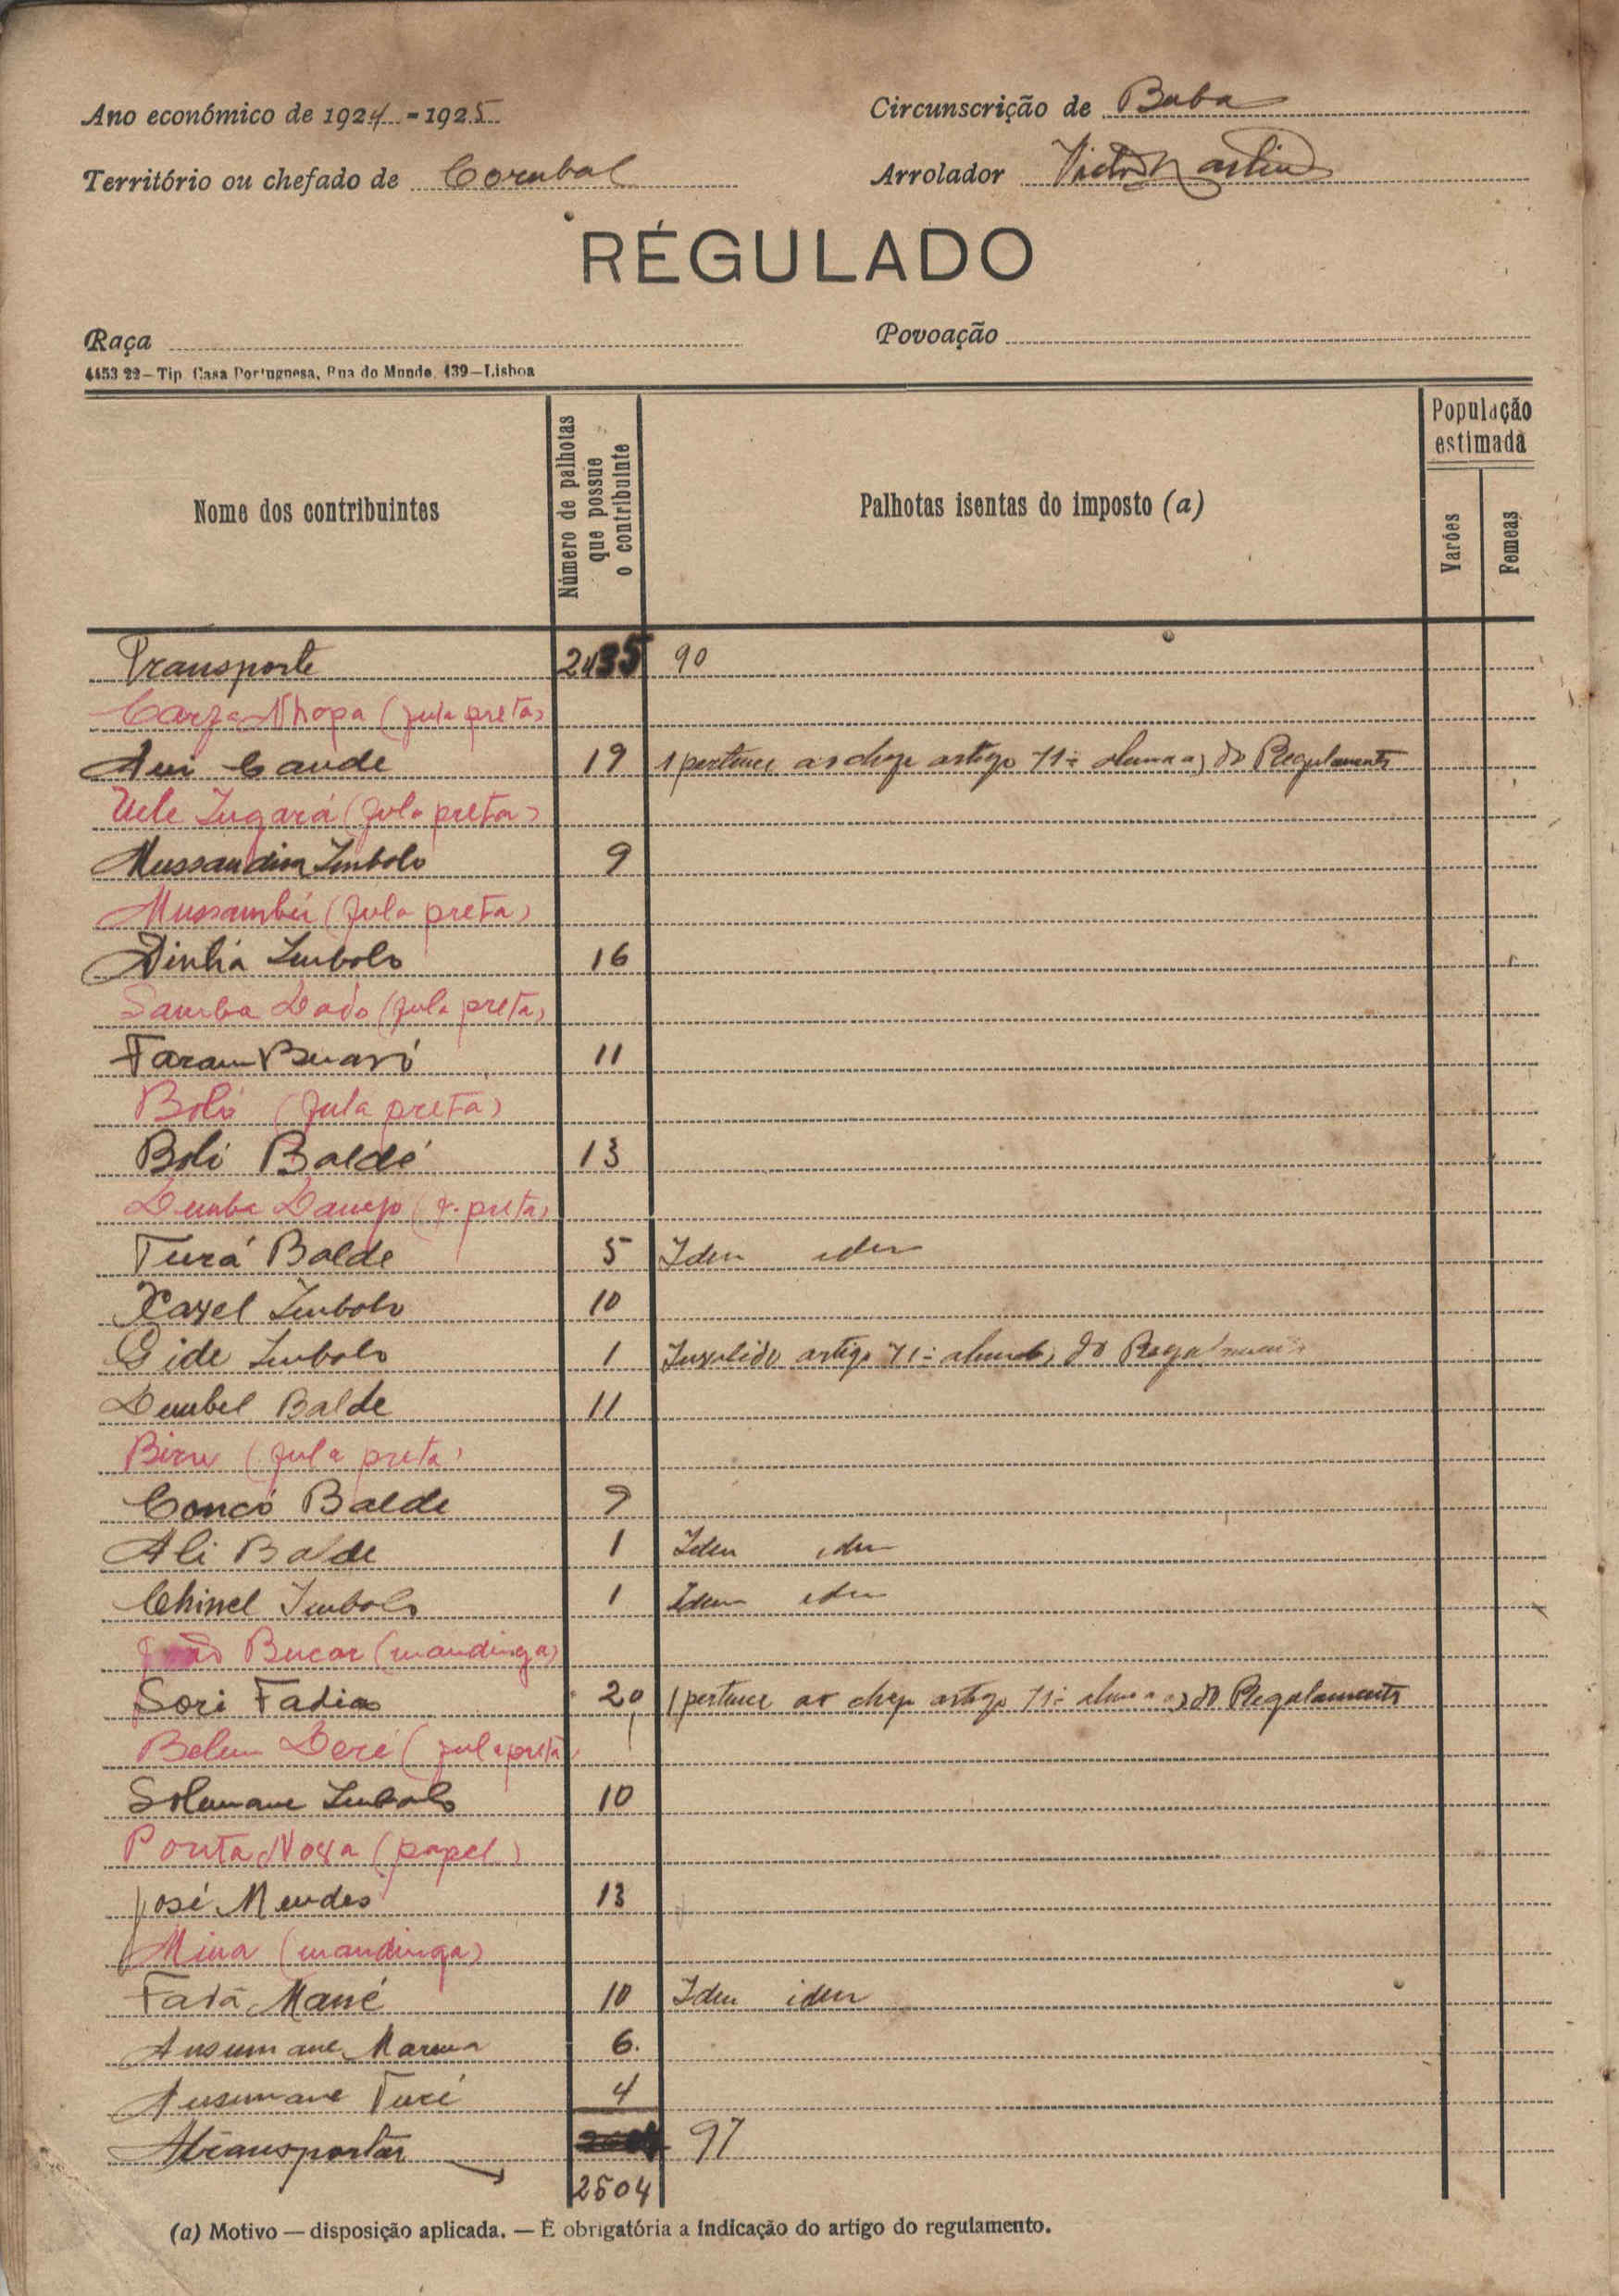 Ano económico de 1924-1925
Circunscrição de Buba
Território ou chefado de Corubal
Arrolador Victor Martins
RÉGULADO
Raça
Povoação
4453 22—Tip. Casa Portuguesa, Rua do Mundo, 139—Lisboa
Nome dos contribuintes
Número de palhotas que possue o contribuinte
Palhotas isentas do imposto (a)
População estimada
Varões
Femeas
Transporte 2435 90
Nhopa (fula preta)
19 1 pertence ao chefe artigo 71º alinea a) do Regulamento
(fula preta)
9
(fula preta)
16
Samba Dado (fula preta)
11
Boló (fula preta)
Boli Baldé 13
Demba (f. preta)
Turá Balde 5 Idem idem
10
Gide 1 Invalido artigo 71º alinea b) do Regulamento
Dembel Balde 11
(fula preta)
Concó Balde 9
Ali Balde 1 Idem idem
1 Idem idem
Bucar (mandinga)
Sori Fadia 20 1 pertence ao chefe artigo 71º alinea a) do Regulamento
(fula preta)
10
Ponta Nova (papel)
José Mendes 13
Mina (mandinga)
Mané 10 Idem idem
Ansumane 6
Ansumane Turé 4
A transportar 97
2504
(a) Motivo — disposição aplicada. — É obrigatória a indicação do artigo do regulamento.